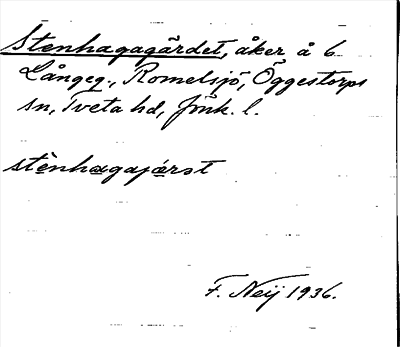 Stenhagagärdet, åker å 6
Långeg., Romelsjö, Öggestorps
sn, Tveta hd, Jönk. l.
stènhagajárət
F. Neij 1936.